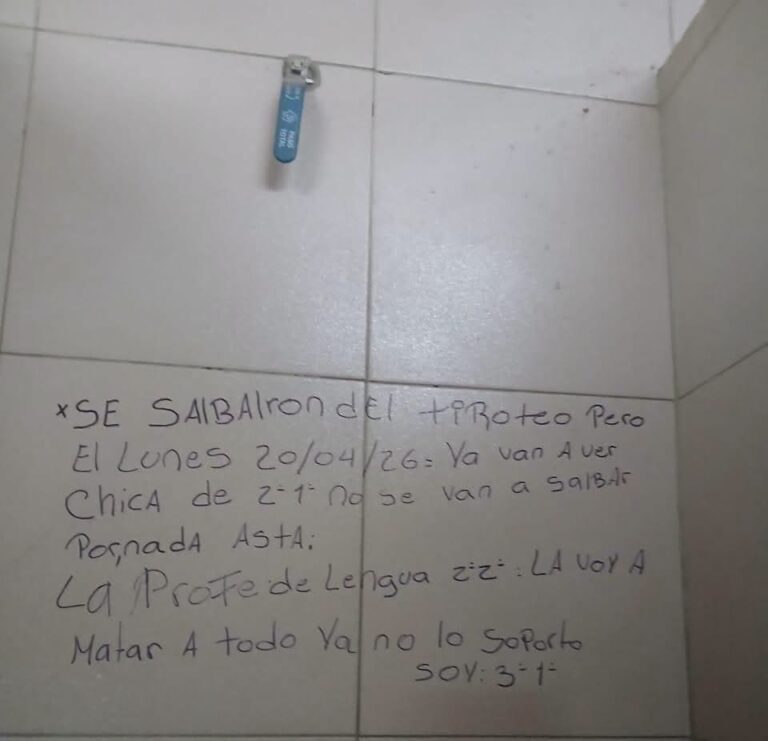 PASO TOTAL
*SE SAlBAIron dEl tiRoteo Pero
El Lunes 20/04/26: Ya van A ver
ChicA de 2-1- no se van a salBAr
Por,nadA AstA:
La Profe de Lengua 2-2-: LA voy A
Matar A todo Ya no lo Soporto
SOY: 3-1-